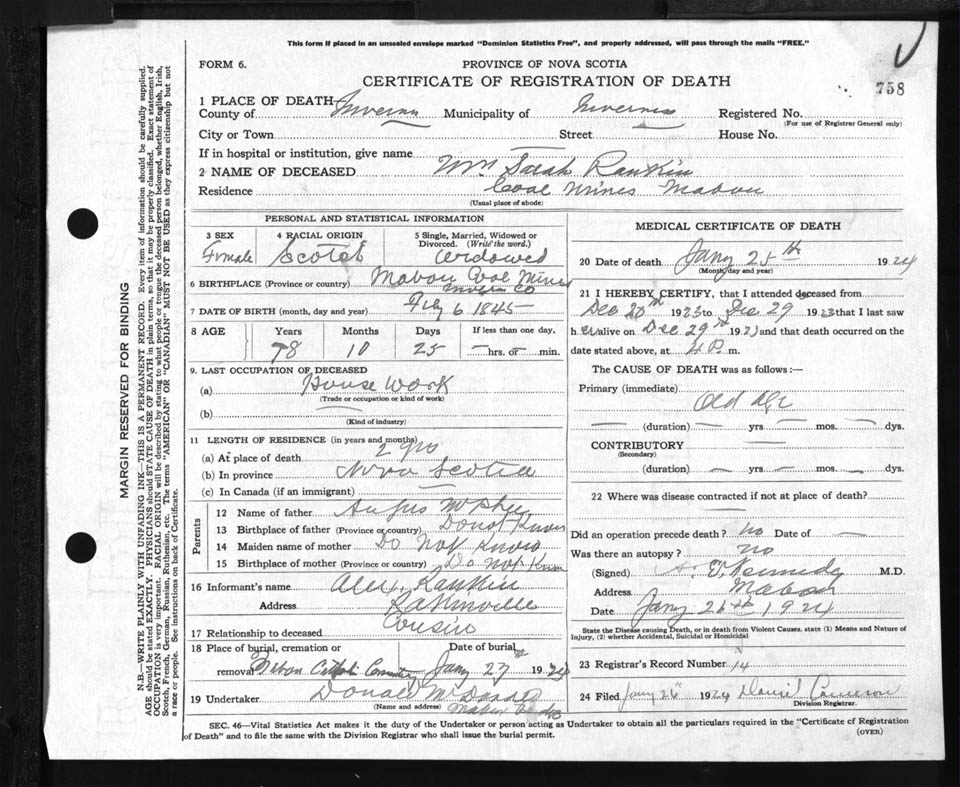 This form if placed in an unsealed envelope marked "Dominion Statistics Free", and properly addressed, will pass through the mails "FREE."
FORM 6.
PROVINCE OF NOVA SCOTIA
CERTIFICATE OF REGISTRATION OF DEATH
758
1 PLACE OF DEATH
County of Inverness Municipality of Inverness Registered No.
(For use of Registrar General only)
City or Town Street House No.
If in hospital or institution, give name
2 NAME OF DECEASED Mrs Sarah Rankin
Residence Coal Mines Mabou
(Usual place of abode)
PERSONAL AND STATISTICAL INFORMATION
3 SEX Female
4 RACIAL ORIGIN Scotch
5 Single, Married, Widowed or Divorced. (Write the word.) Widowed
6 BIRTHPLACE (Province or country) Mabou Coal Mines
Invern Co
7 DATE OF BIRTH (month, day and year) 6 1845
8 AGE Years Months Days If less than one day,
78 10 25 hrs. or min.
9. LAST OCCUPATION OF DECEASED
(a) House Work
(Trade or occupation or kind of work)
(b)
(Kind of industry)
11 LENGTH OF RESIDENCE (in years and months)
(a) At place of death 2 yrs
(b) In province Nova Scotia
(c) In Canada (if an immigrant)
Parents
12 Name of father Angus McPhee
13 Birthplace of father (Province or country) Do not Know
14 Maiden name of mother Do Not Know
15 Birthplace of mother (Province or country) Do Not Know
16 Informant's name Alex. Rankin
Address
17 Relationship to deceased Cousin
18 Place of burial, cremation or Date of burial
removal Mabou Jany 27 1924
19 Undertaker Donald
(Name and address) Mabou
MEDICAL CERTIFICATE OF DEATH
20 Date of death Jany 25th 1924
(Month, day and year)
21 I HEREBY CERTIFY, that I attended deceased from
Dec 1923 to Dec 29 1923 that I last saw
h er alive on Dec 29 1923 and that death occurred on the
date stated above, at 4 P. m.
The CAUSE OF DEATH was as follows:—
Primary (immediate)
Old Age
(duration) yrs. mos. dys.
CONTRIBUTORY
(Secondary)
(duration) yrs. mos. dys.
22 Where was disease contracted if not at place of death?
Did an operation precede death? no Date of
Was there an autopsy? no
(Signed) Kennedy M.D.
Address Mabou
Date Jany 26th 1924
State the Disease causing Death, or in death from Violent Causes. state (1) Means and Nature of
Injury, (2) whether Accidental, Suicidal or Homicidal
23 Registrar's Record Number 14
24 Filed Jany 26 1924 Daniel Cameron
Division Registrar.
SEC. 46—Vital Statistics Act makes it the duty of the Undertaker or person acting as Undertaker to obtain all the particulars required in the "Certificate of Registration
of Death" and to file the same with the Division Registrar who shall issue the burial permit. (OVER)
MARGIN RESERVED FOR BINDING
N.B.—WRITE PLAINLY WITH UNFADING INK—THIS IS A PERMANENT RECORD. Every item of information should be carefully supplied.
AGE should be stated EXACTLY. PHYSICIANS should STATE CAUSE OF DEATH in plain terms, so that it may be properly classified. Exact statement of
OCCUPATION is very important. RACIAL ORIGIN will be described by stating to what people or tongue the deceased person belonged, whether English, Irish,
Scotch, French, German, Russian, Ruthenian, etc. The terms "AMERICAN" OR "CANADIAN" MUST NOT BE USED as they express citizenship but not
a race or people. See instructions on back of Certificate.